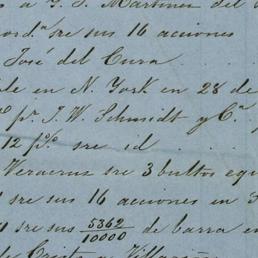 a J. J. Martinez del
ord.ⁿ sre sus 16 acciones
José del Cura
le en N. York en 28 de
pʳ J. W. Schmidt y Cª
12 p% sre id
Veracruz sre 3 bultos equ
sre sus 16 acciones en
sre sus 5362/10000 de barra en
Cristo y Villa